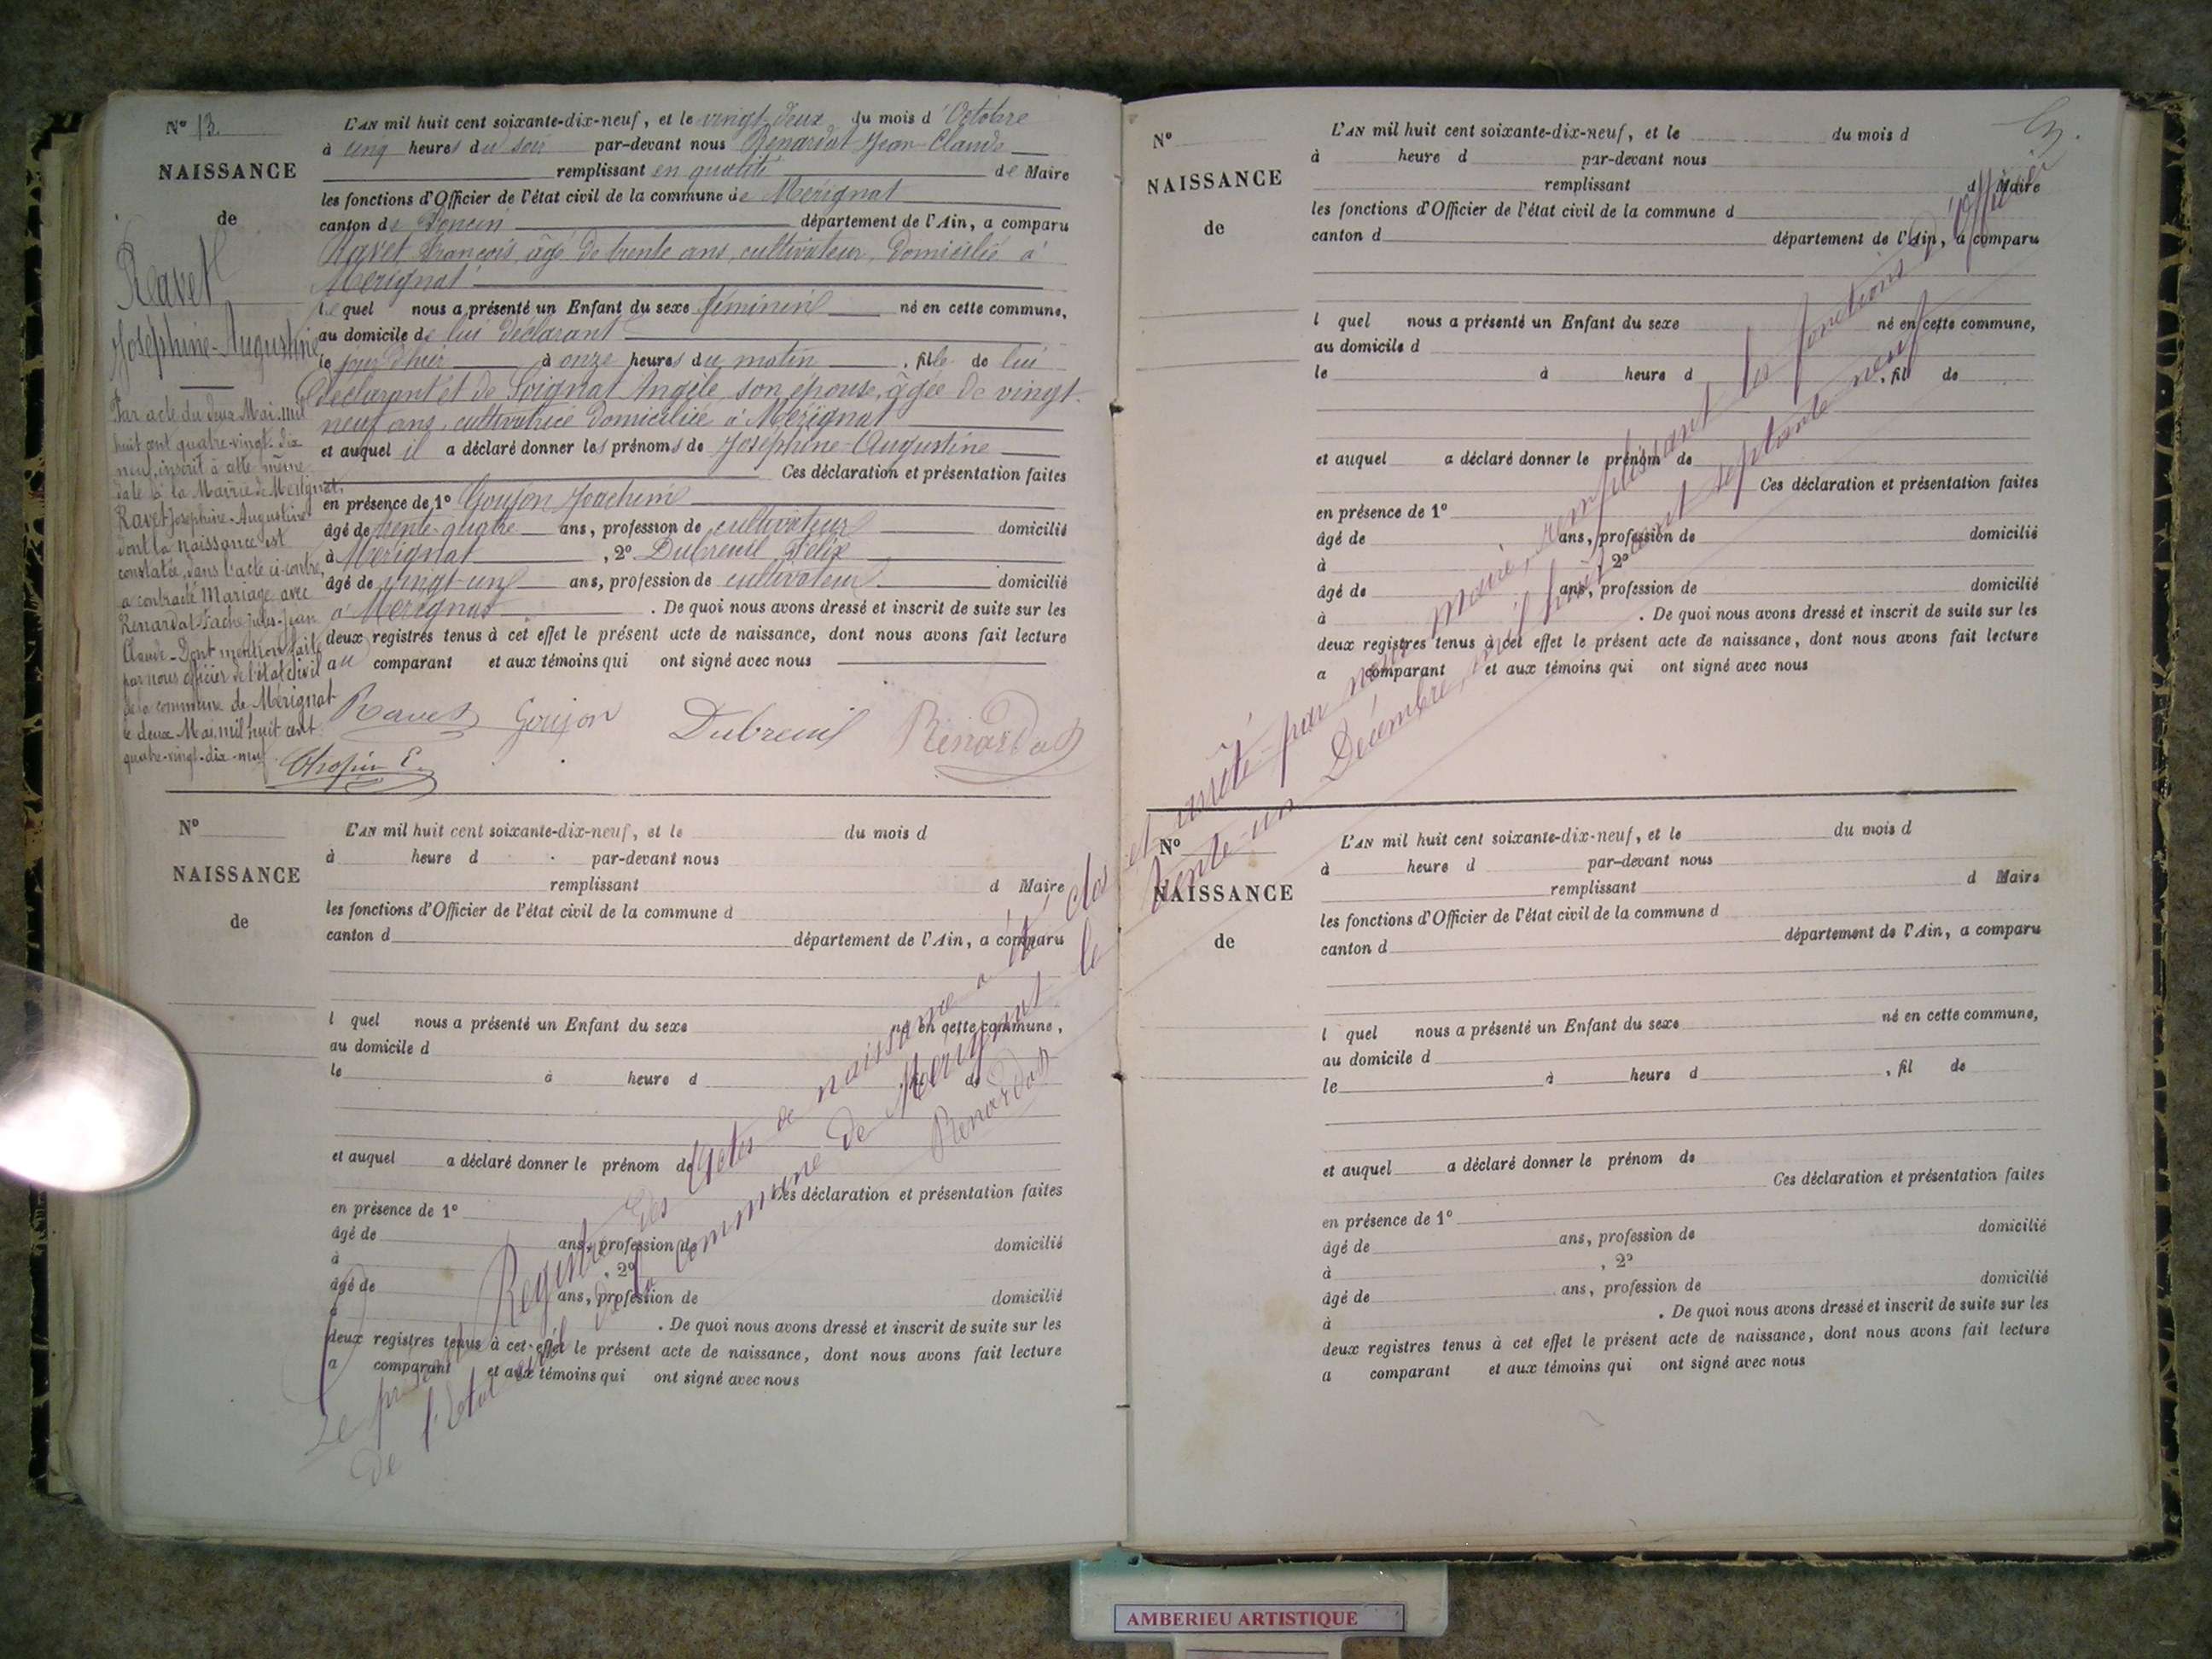 N° 13.
NAISSANCE
de
Ravet
Joséphine-Augustine
Par acte du deux Mai mil
huit cent quatre-vingt-dix
neuf, inscrit à cette même
date à la Mairie de Mérignat,
Ravet Joséphine-Augustine
dont la naissance est
constatée dans l'acte ci-contre,
a contracté Mariage avec
Renardat-Fache Jules-Jean
Claude - Dont mention faite
par nous officier de l'état civil
de la commune de Mérignat
le deux Mai mil huit cent
quatre-vingt-dix-neuf.
L'AN mil huit cent soixante-dix-neuf, et le vingt-deux du mois d'Octobre
à cinq heures du soir par-devant nous Renardat Jean-Claude
remplissant en qualité de Maire
les fonctions d'Officier de l'état civil de la commune de Mérignat
canton de Poncin département de l'Ain, a comparu
Ravet François, âgé de trente ans, cultivateur, domicilié à
Mérignat
lequel nous a présenté un Enfant du sexe féminin né en cette commune,
au domicile de lui déclarant
le jour d'hier à onze heures du matin, fille de lui
déclarant et de Soignat Angèle son épouse, âgée de vingt-
neuf ans, cultivatrice domiciliée à Mérignat
et auquel il a déclaré donner les prénoms de Joséphine-Augustine
Ces déclaration et présentation faites
en présence de 1° Goujon Joachim
âgé de trente-quatre ans, profession de cultivateur domicilié
à Mérignat, 2° Dubreuil Félix
âgé de vingt-un ans, profession de cultivateur domicilié
à Mérignat. De quoi nous avons dressé et inscrit de suite sur les
deux registres tenus à cet effet le présent acte de naissance, dont nous avons fait lecture
au comparant et aux témoins qui ont signé avec nous
Ravet Goujon Dubreuil Renardat
Chopin E.
N°
NAISSANCE
de
L'AN mil huit cent soixante-dix-neuf, et le du mois d
à heure d par-devant nous
remplissant d Maire
les fonctions d'Officier de l'état civil de la commune d
canton d département de l'Ain, a comparu
l quel nous a présenté un Enfant du sexe né en cette commune,
au domicile d
le à heure d , fil de
et auquel a déclaré donner le prénom de
Ces déclaration et présentation faites
en présence de 1°
âgé de ans, profession de domicilié
à , 2°
âgé de ans, profession de domicilié
à . De quoi nous avons dressé et inscrit de suite sur les
deux registres tenus à cet effet le présent acte de naissance, dont nous avons fait lecture
a comparant et aux témoins qui ont signé avec nous
Le présent Registre des Actes de naissance a été clos et arrêté par nous maire, remplissant les fonctions d'officier
de l'Etat civil de la commune de Mérignat le trente-un Décembre mil huit cent septante neuf
Renardat
N°
NAISSANCE
de
L'AN mil huit cent soixante-dix-neuf, et le du mois d
à heure d par-devant nous
remplissant d Maire
les fonctions d'Officier de l'état civil de la commune d
canton d département de l'Ain, a comparu
l quel nous a présenté un Enfant du sexe né en cette commune,
au domicile d
le à heure d , fil de
et auquel a déclaré donner le prénom de
Ces déclaration et présentation faites
en présence de 1°
âgé de ans, profession de domicilié
à 2°
âgé de ans, profession de domicilié
à . De quoi nous avons dressé et inscrit de suite sur les
deux registres tenus à cet effet le présent acte de naissance, dont nous avons fait lecture
a comparant et aux témoins qui ont signé avec nous
N°
NAISSANCE
de
L'AN mil huit cent soixante-dix-neuf, et le du mois d
à heure d par-devant nous
remplissant d Maire
les fonctions d'Officier de l'état civil de la commune d
canton d département de l'Ain, a comparu
l quel nous a présenté un Enfant du sexe né en cette commune,
au domicile d
le à heure d , fil de
et auquel a déclaré donner le prénom de
Ces déclaration et présentation faites
en présence de 1°
âgé de ans, profession de domicilié
à , 2°
âgé de ans, profession de domicilié
à . De quoi nous avons dressé et inscrit de suite sur les
deux registres tenus à cet effet le présent acte de naissance, dont nous avons fait lecture
a comparant et aux témoins qui ont signé avec nous
AMBERIEU ARTISTIQUE